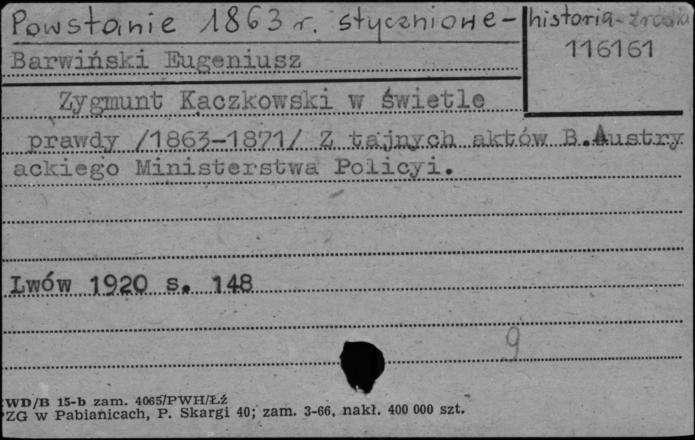 Powstanie 1863 r. styczniowe - historia - źródła
116161
Barwiński Eugeniusz
Zygmunt Kaczkowski w świetle
prawdy /1863-1871/ Z tajnych aktów B.Austry
ackiego Ministerstwa Policyi.
Lwów 1920 s. 148
9
WD/B 15-b zam. 4065/PWH/Łź
PZG w Pabianicach, P. Skargi 40; zam. 3-66, nakł. 400 000 szt.